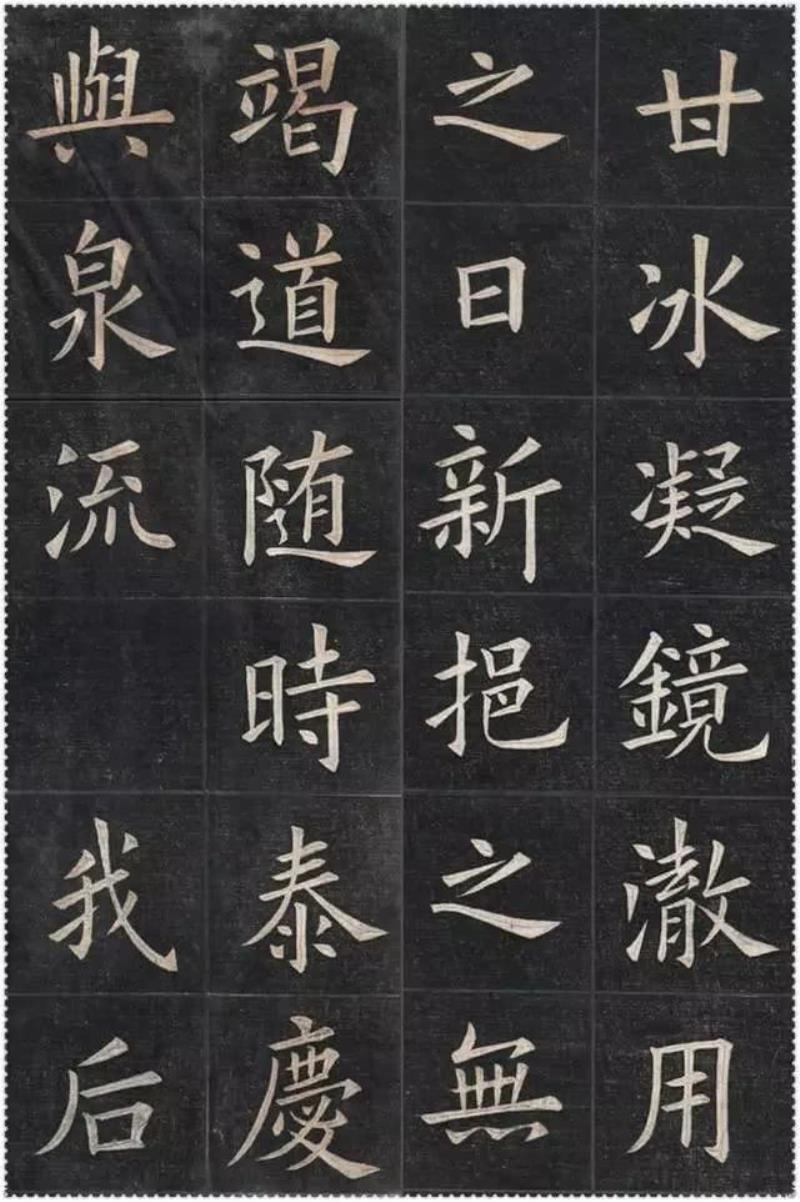 甘冰凝鏡澈用
之日新挹之無
竭道隨時泰慶
與泉流我后